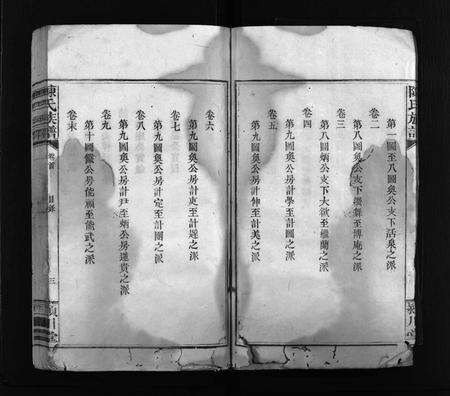 陳氏族譜
第一圖至八圖與公支下活臬之派
卷二
第八圖與公支下 至博庵之派
卷三
第八圖炳公支下大歡至 蘭之派
卷四
第九圖奥公房計學至計圖之派
卷五
第九圖奥公房計伸至計美之派
卷六
第九圖奥公房計 至計遲之派
卷七
第九圖奥公房計定至計圖之派
卷八
第九圖奥公房計尹至炳公房達貴之派
卷九
第十圖 公房能 至能武之派
卷末
陳氏族譜
卷首
目錄
三
潁川堂